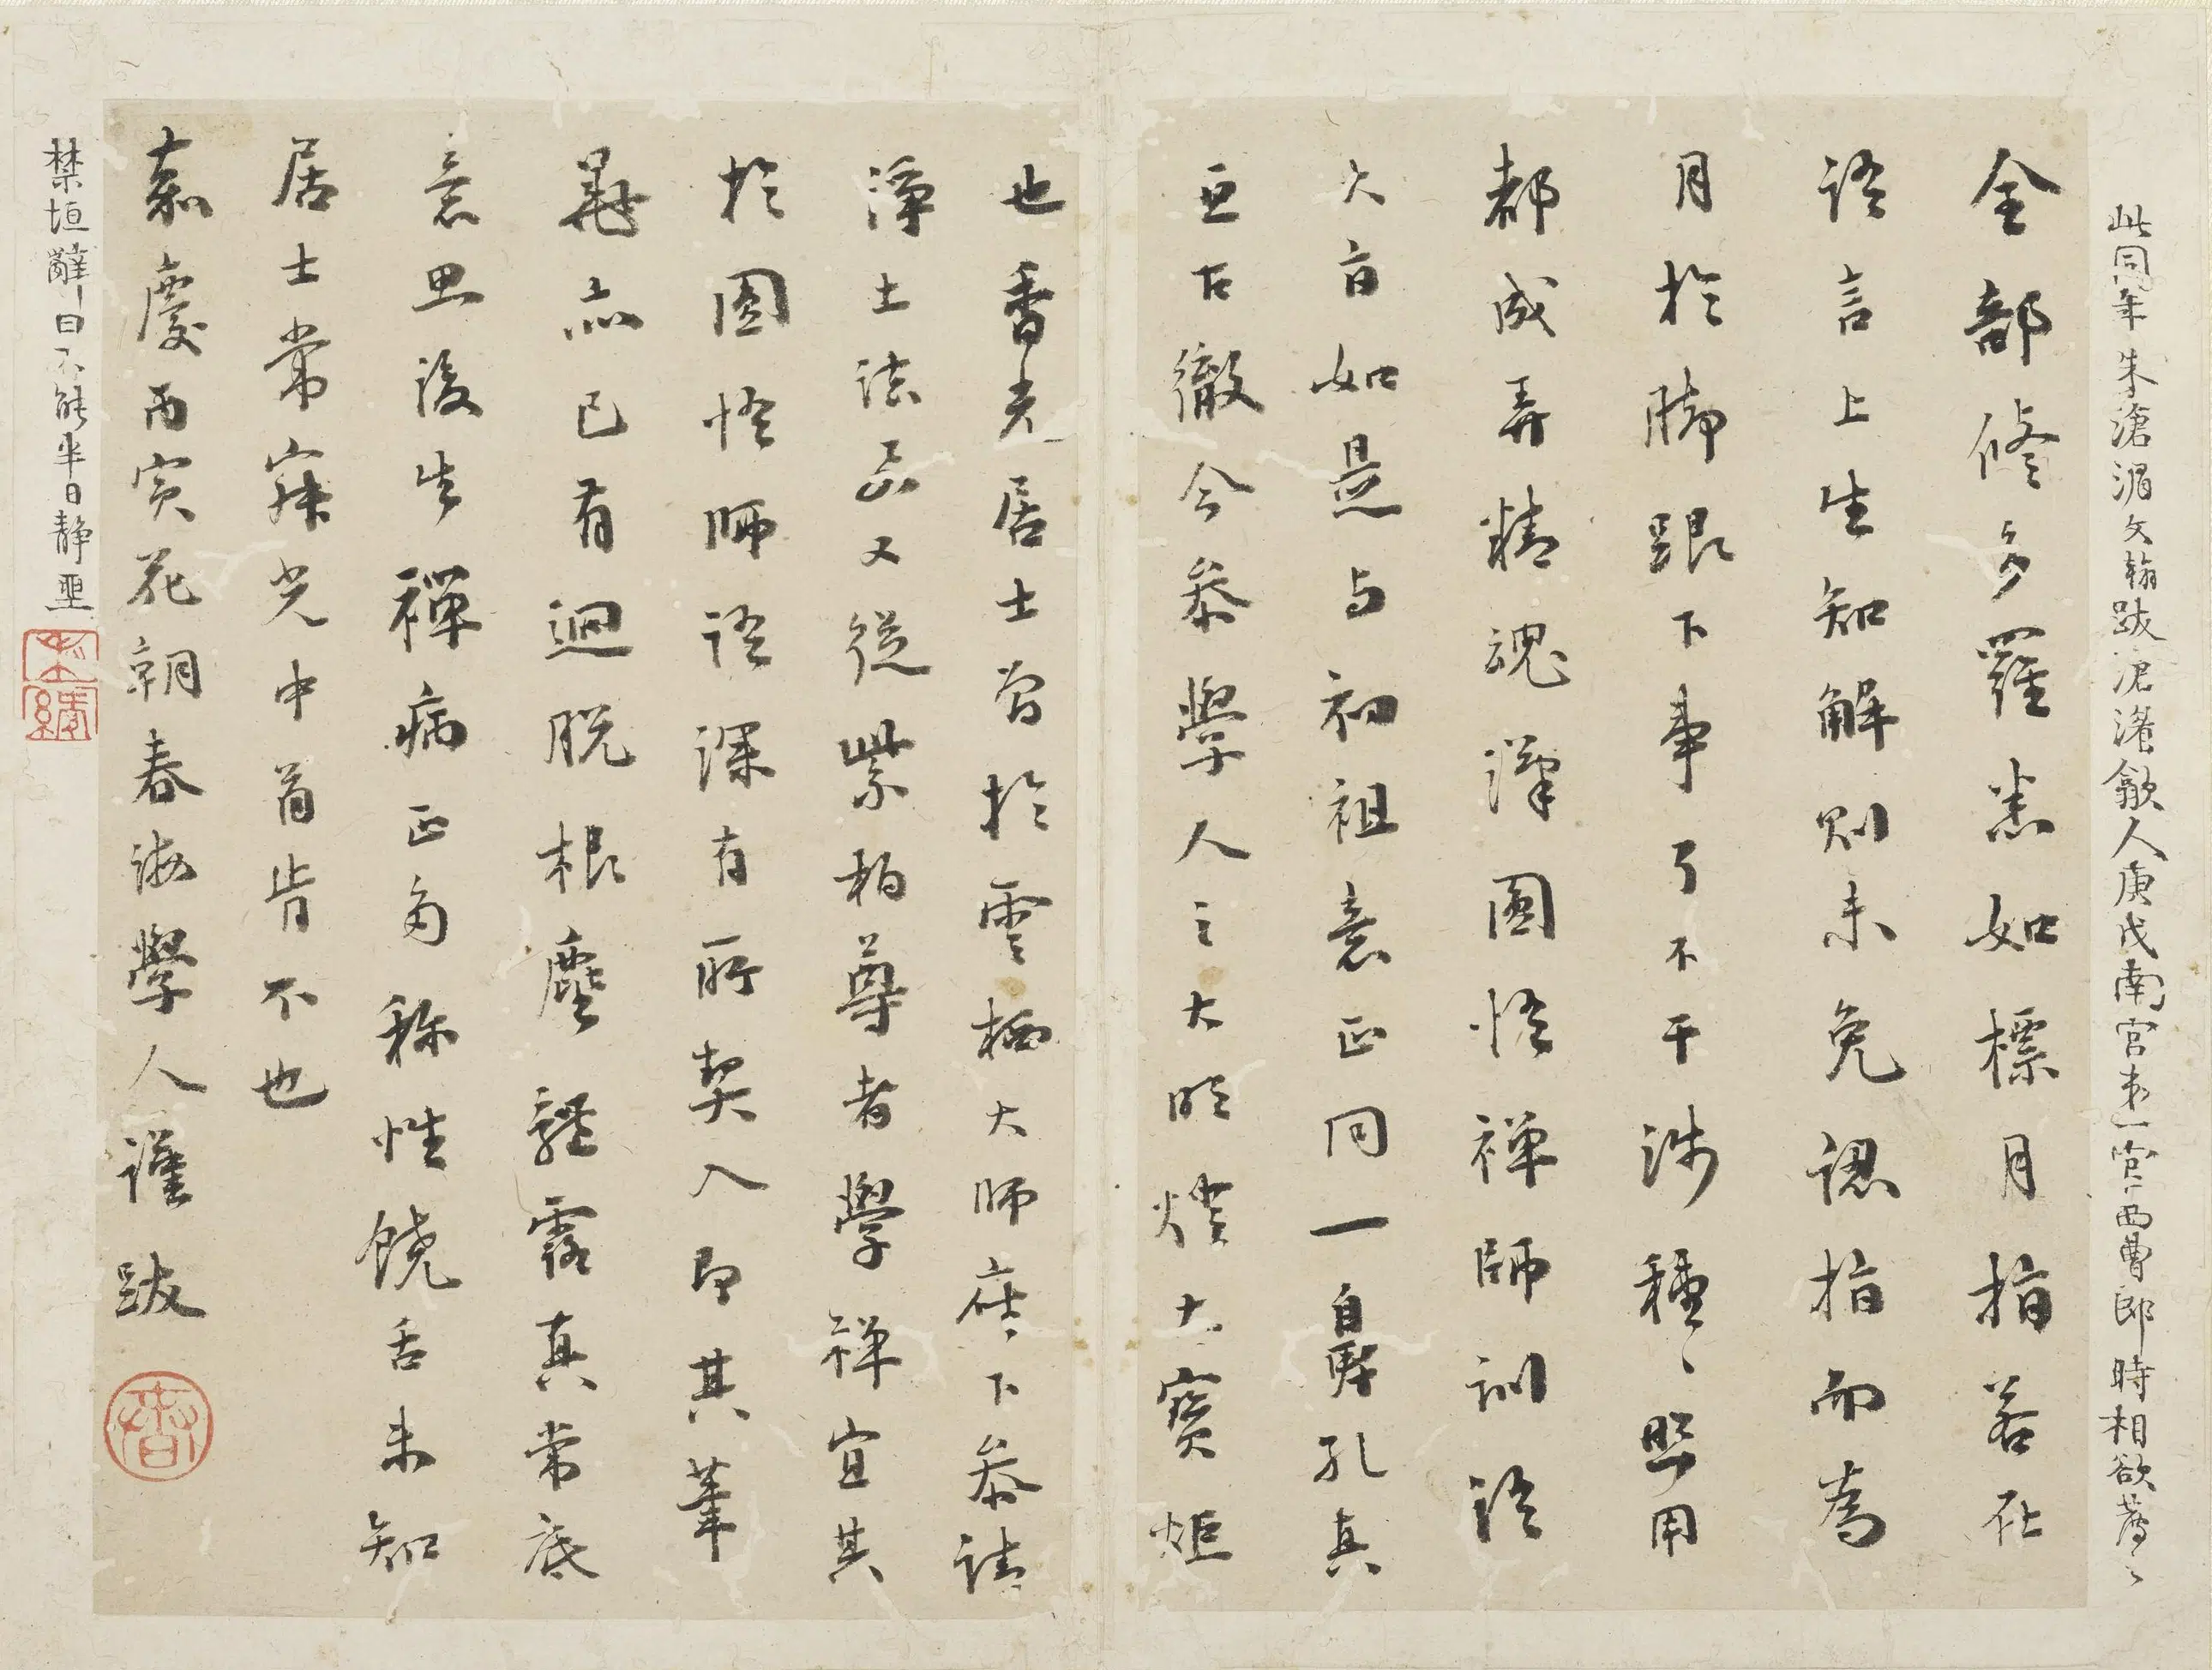 此同年朱滄湄文翰跋滄湄歙人庚戌南宮弟一官西曹郎時相欲薦之
全部修多羅悉如標月指若在
語言上生知解則未免認指而為
月於脚跟下事了不干涉種〻照用
都成弄精魂漢圜悟禪師訓語
大旨如是与初祖意正同一鼻孔真
亘古徹今參學人之大明燈大寶炬
也香光居士曾於雲棲大師座下參請
淨土法要又從紫柏尊者學禪宜其
於圜悟師語深有所契入即其筆
墨亦已有迥脱根塵體露真常底
意思後生禪病正多称性饒舌未知
居士常寂光中首肯不也
嘉慶丙寅花朝春海學人謹跋
香
禁垣辭曰不能半日靜坐